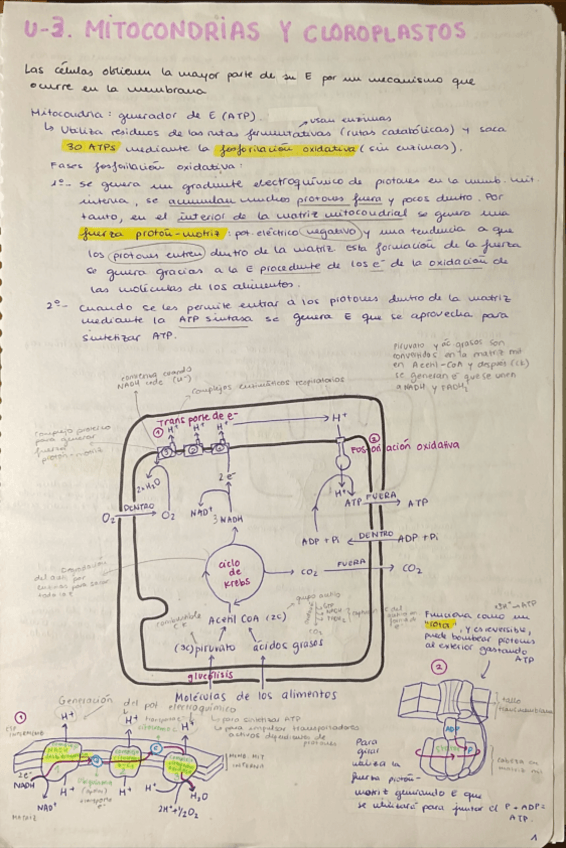 U-3. MITOCONDRIAS Y CLOROPLASTOS
Las células obtienen la mayor parte de su E por un mecanismo que
ocurre en la membrana
Mitocondria: generador de E (ATP)
usan enzimas
↳ Utiliza residuos de las rutas fermentativas (rutas catabólicas) y saca
30 ATPs mediante la fosforilación oxidativa (sin enzimas).
Fases fosforilación oxidativa:
1º- Se genera un gradiente electroquímico de protones en la memb. mit.
interna, se acumulan muchos protones fuera y pocos dentro. Por
tanto, en el interior de la matriz mitocondrial se genera una
fuerza protón-motriz: pot. eléctrico negativo y una tendencia a que
los protones entren dentro de la matriz. Esta formación de la fuerza
se genera gracias a la E procedente de los e⁻ de la oxidación de
las moléculas de los alimentos.
2º- Cuando se les permite entrar a los protones dentro de la matriz
mediante la ATP sintasa se genera E que se aprovecha para
sintetizar ATP.
Piruvato y ác grasos son
convertidos en la matriz mit
en Acetil-CoA y después (CK)
se generan e⁻ que se unen
a NADH y FADH₂
complejos enzimáticos respiratorios
Transporte de e⁻
① H⁺ H⁺ H⁺ → H⁺
complejo proteico
para generar
fuerza
protón-motriz
②
Fosforilación oxidativa
2H₂O
2e⁻
H⁺
O₂ DENTRO O₂
NAD⁺
NADH
ATP FUERA ATP
ADP + Pi DENTRO ADP + Pi
ciclo
de
Krebs
CO₂ FUERA CO₂
grupo acetilo
Acetil CoA (2C)
CO₂
(3C) piruvato ácidos grasos
glucólisis
Moléculas de los alimentos
Funciona como un
rotor, y es reversible,
puede bombear protones
al exterior gastando
ATP
Generación del pot electroquímico
①
H⁺ H⁺ H⁺
↳ para sintetizar ATP
↳ para impulsar transportadores
activos dependientes de
protones
MEMB MIT
INTERNA
2e⁻
NADH
NAD⁺
H⁺ H⁺ H⁺
H₂O
2H⁺ + ½O₂
MATRIZ
②
tallo
transmembrana
ADP
P
cabeza en
matriz mit
Para
girar
utiliza la
fuerza protón-
motriz generando E que
se utilizará para juntar el P + ADP =
ATP.
1